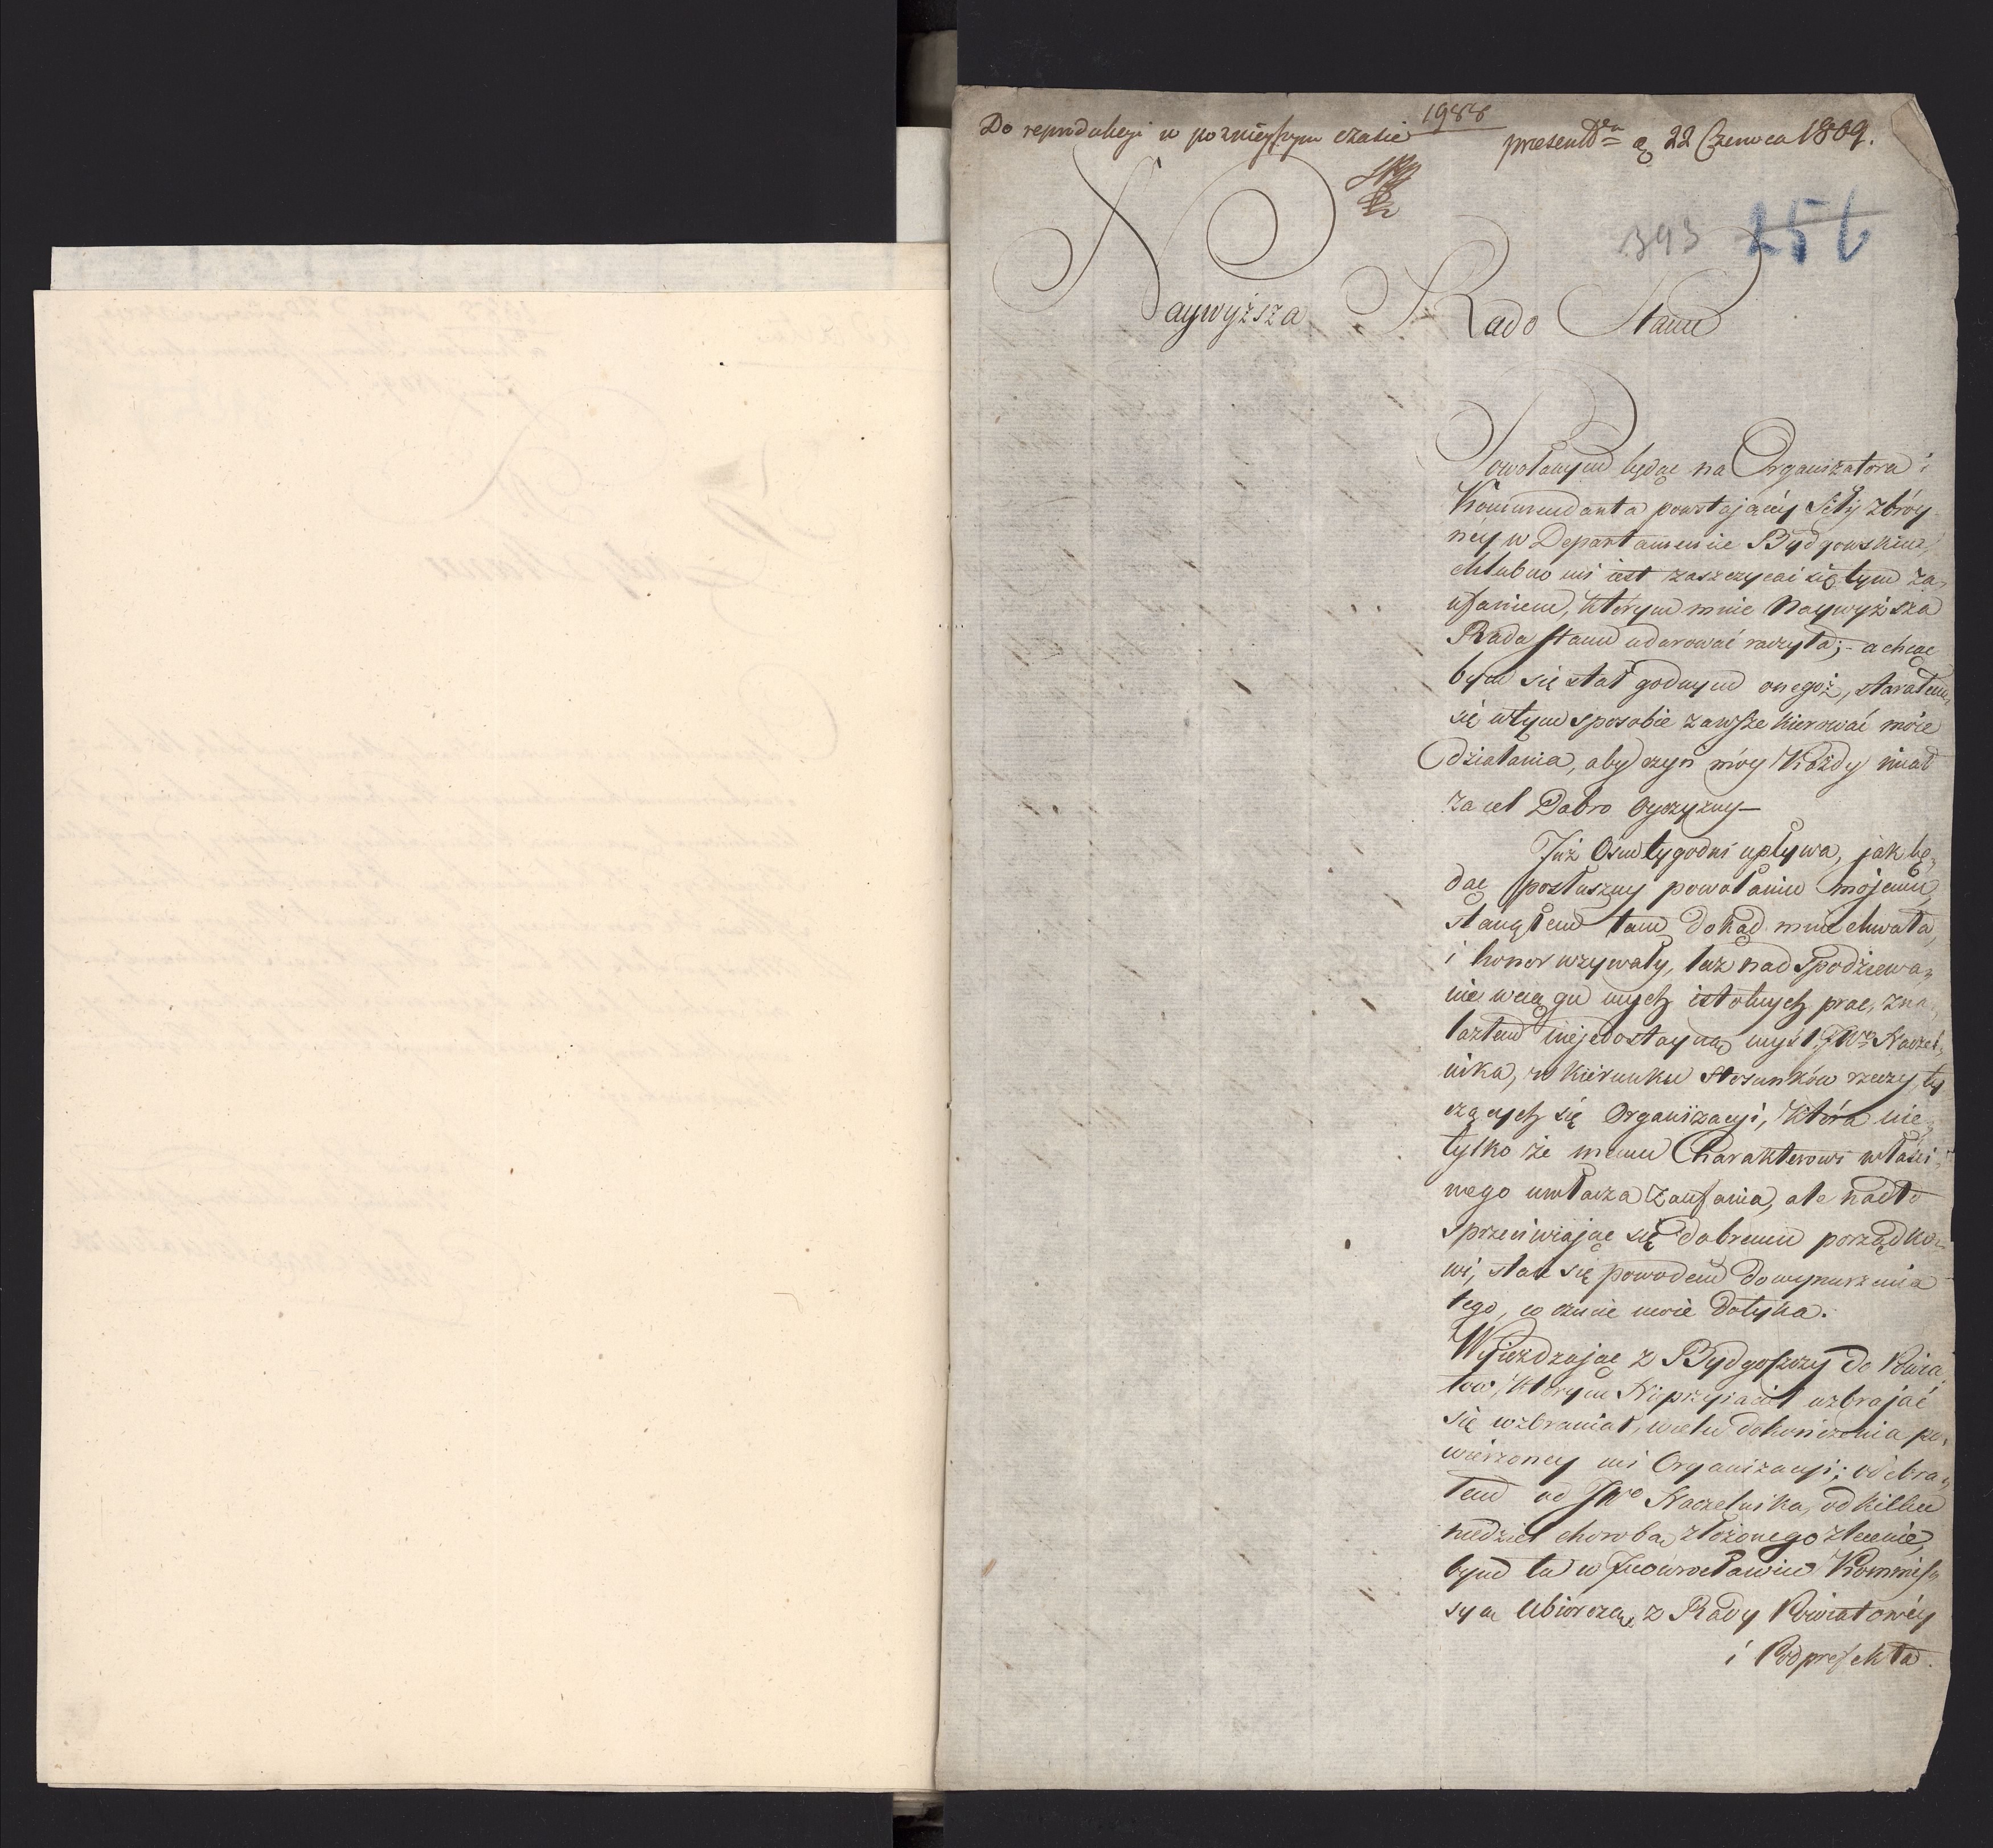 Do reprodukcyi w poznieyszym czasie
1988
presentt a 22 Czerwca 1809.
393 256
Naywyższa Rado Stanu
Powołanym będąc na Organizatora i
Kommendanta powstającéy Siły zbróy
néy w Departamencie Bydgowskim,
chlubno mi iest zaszczycać się tym za„
ufaniem, którym mnie Naywyższa
Rada Stanu udarować raczyła; – a chcąc
bym się stał godnym onegoż, starałem
się w tym sposobie zawsze kierować moie
działania, aby czyn móy Każdy miał
za cel Dobro Oyczyzny –
Już Osm tygodni upływa, jak bę„
dąc posłuszny powołaniu mojemu,
stanąłem tam, dokąd mnie chwała,
i honor wzywały, lecz nad spodziewa„
nie w ciągu mych istotnych prac, zna„
lazłem niejedostayną myśl JWo Naczel„
nika, w kierunku stosunków rzeczy ty
czących się Organizacyi, Która nie„
tylko że memu Charakterowi właści„
wego uwłacza zaufania, ale nadto
sprzeciwiając się dobremu porządko„
wi, stać się powodem do wynurzenia
tego, co czucie moie dotyka.
Wyieżdzając z Bydgoszczy do Powia„
tow, którym Nieprzyiaciel uzbrajać
się wzbraniał, w celu dokończenia po„
wierzoney mi Organizacyi; odebra„
łem od JWo Naczelnika, od kilku
niedziel chorobą złożonego zlecenie,
bym tu w Inowrocławiu Kommis„
syą Ubiorczą, z Rady Powiatowéy
i Podprefekta.